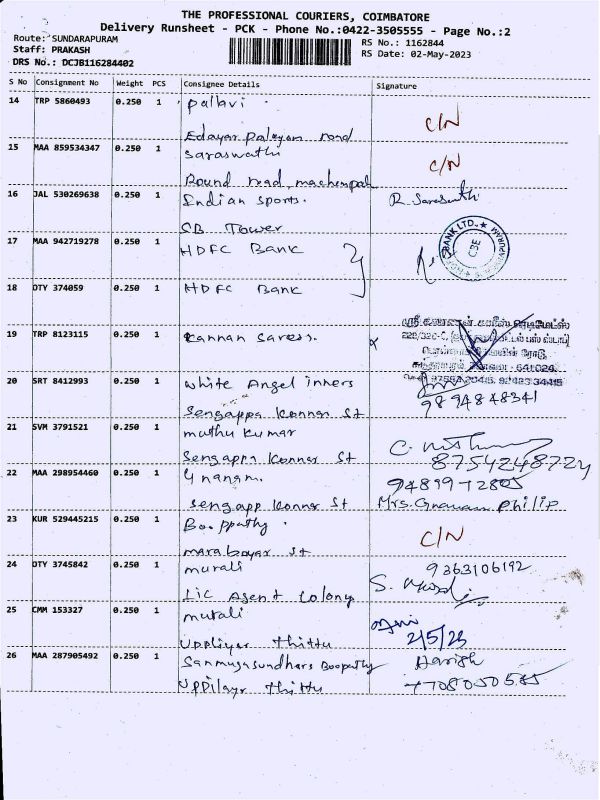 THE PROFESSIONAL COURIERS, COIMBATORE
Delivery Runsheet - PCK - Phone No.:0422-3505555 - Page No.:2
Route: SUNDARAPURAM
RS No.: 1162844
Staff: PRAKASH
RS Date: 02-May-2023
DRS No.: DCJB116284402
S No Consignment No Weight PCS Consignee Details Signature
14 TRP 5860493 0.250 1 Pallavi
Edayar Palayam road C/N
15 MAA 859534347 0.250 1 Saraswathi
Round road, C/N
16 JAL 530269638 0.250 1 Indian Sports.
SB Tower
17 MAA 942719278 0.250 1 HDFC Bank
BANK LTD.,
CBE
18 DTY 374059 0.250 1 HDFC Bank
19 TRP 8123115 0.250 1 Kannan Sarees.
20 SRT 8412993 0.250 1 White Angel inners
Sengappa Konnar St 9894848341
21 SVM 3791521 0.250 1 muthu kumar
Sengappa Konnar St 8754248724
22 MAA 298954460 0.250 1 Gnanam.
Sengapp Konnar St Mrs. Gnanam Philip
23 KUR 529445215 0.250 1 Booppathy
St C/N
24 DTY 3745842 0.250 1 murali 9363106192
LIC Agent Colony
25 CMM 153327 0.250 1 murali
Uppliyar Thittu 2/5/23
26 MAA 287905492 0.250 1 Sanmugasundhars Boopathy Harish
Uppilayr Thittu 7708050585